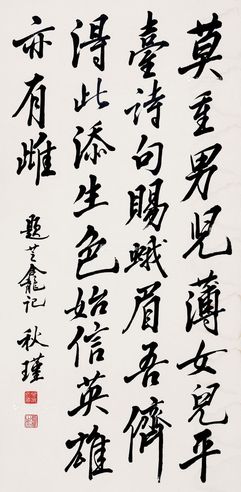 莫重男児薄女兒平
臺詩句賜蛾眉吾儕
得此添生色始信英雄
亦有雌
題芝龕記
秋瑾